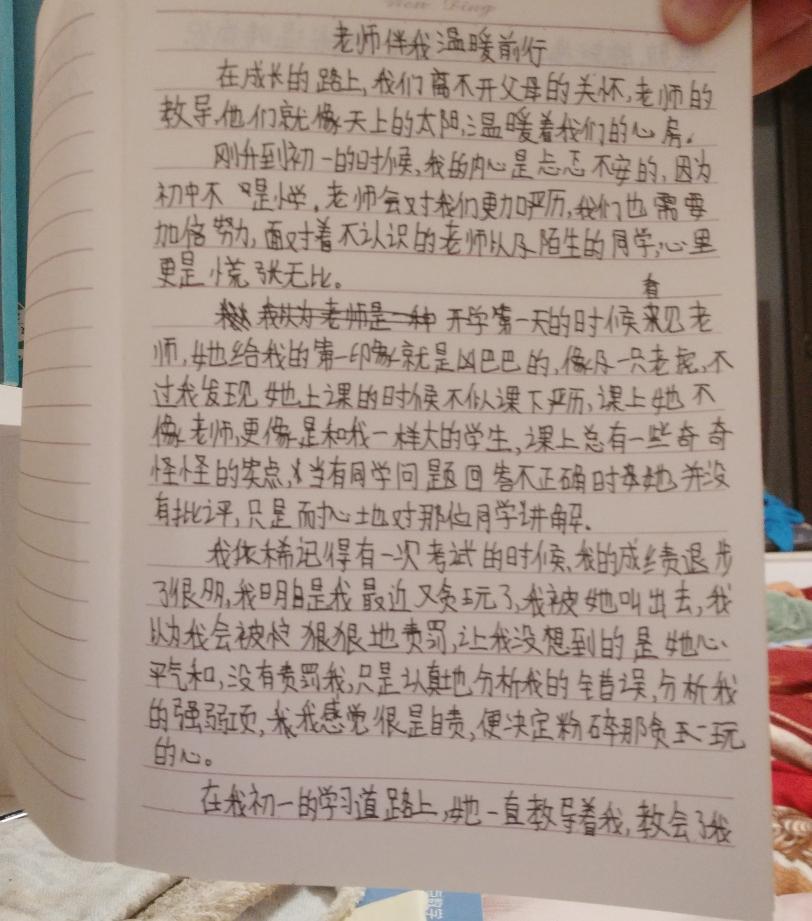 老师伴我温暖前行
在成长的路上,我们离不开父母的关怀,老师的
教导,他们就像天上的太阳,温暖着我们的心房。
刚升到初一的时候,我的内心是忐忑不安的,因为
初中不是小学,老师会对我们更加严历,我们也需要
加倍努力,面对着不认识的老师以及陌生的同学,心里
更是慌张无比。
开学第一天的时候来见老
师,她给我的第一印象就是凶巴巴的,像只老虎,不
过我发现她上课的时候不似课下严历,课上她不
像老师,更像是和我一样大的学生,课上总有一些奇奇
怪怪的笑点,当有同学问题回答不正确时她并没
有批评,只是耐心地对那位同学讲解。
我依稀记得有一次考试的时候,我的成绩退步
了很多,我明白是我最近又贪玩了,我被她叫出去,我
以为我会被狠狠地责罚,让我没想到的是她心
平气和,没有责罚我,只是认真地分析我的错误,分析我
的强弱项,我感觉很是自责,便决定粉碎那贪玩
的心。
在我初一的学习道路上,她一直教导着我,教会了我